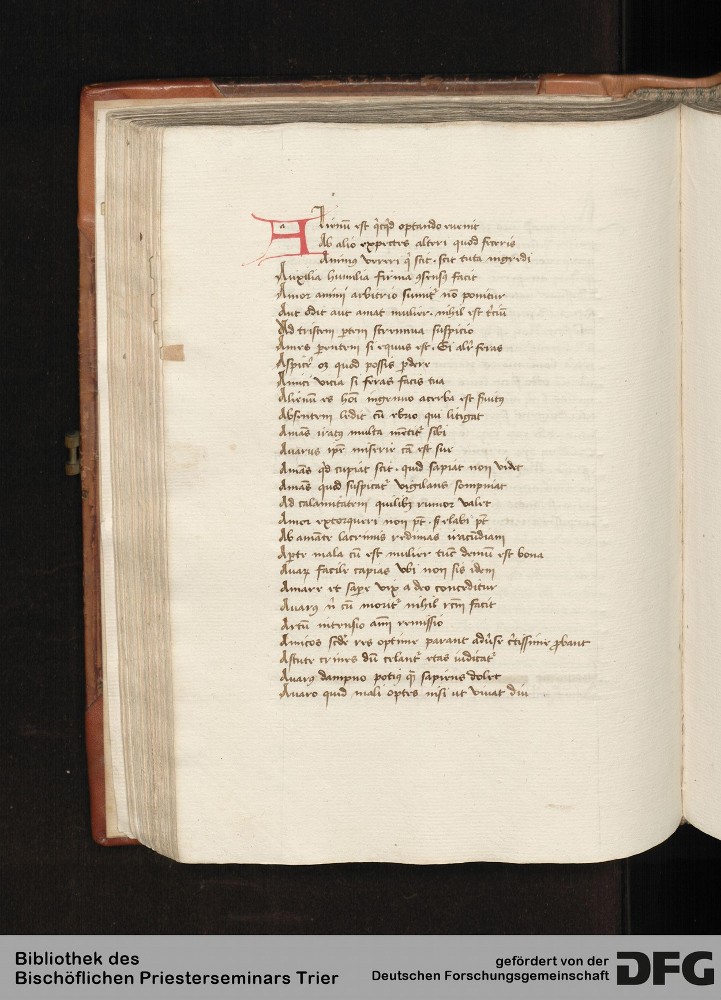 Alienū est q̄cq̄d optando euenit
Ab alio expectes alteri quod feceris
Animꝯ vereri q̄ scit · scit tuta ingredi
Auxilia humilia firma ꝯsensꝯ facit
Amor animi arbitrio sumit᷑ nō ponitur
Aut odit aut amat mulier · nihil est t̄ciū
Ad tristem ꝑtem strennua suspicio
Ames parentem si equus est · Si alit᷑ feras
Aspice᷑ oꝫ quod possis ꝑdere
Amici vicia si feras facis tua
Alienū es hoī ingenuo acerba est ẜuitꝯ
Absentem ledit cū ebrio qui litigat
Amās iratꝯ multa mētit᷑ sibi
Auarus ipē miserie cā est sue
Amās qd cupiat scit · quid sapiat non videt
Amās quod suspicat᷑ vigilans sompniat
Ad calamitatem quilibꝫ rumor valet
Amor extorqueri non pt̄ · ẜ elabi pt̄
Ab amāte lacrimis redimas iracūdiam
Apte mala cū est mulier tūc demū est bona
Auaꝝ facile capias vbi non sis idem
Amare et saꝑe vix a deo conceditur
Auarꝯ n̄ cū morit᷑ nihil rcm̄ facit
Artū intensio aīm remissio
Amicos sc̄de res optime parant adūse c̄tissime ꝓbant
Astute crimes dū celant᷑ etas iudicat᷑
Auarꝯ dampno potiꝯ qm̄ sapiens dolet
Auaro quid mali optes nisi ut viuat diu
Bibliothek des
Bischöflichen Priesterseminars Trier
gefördert von der
Deutschen Forschungsgemeinschaft
DFG